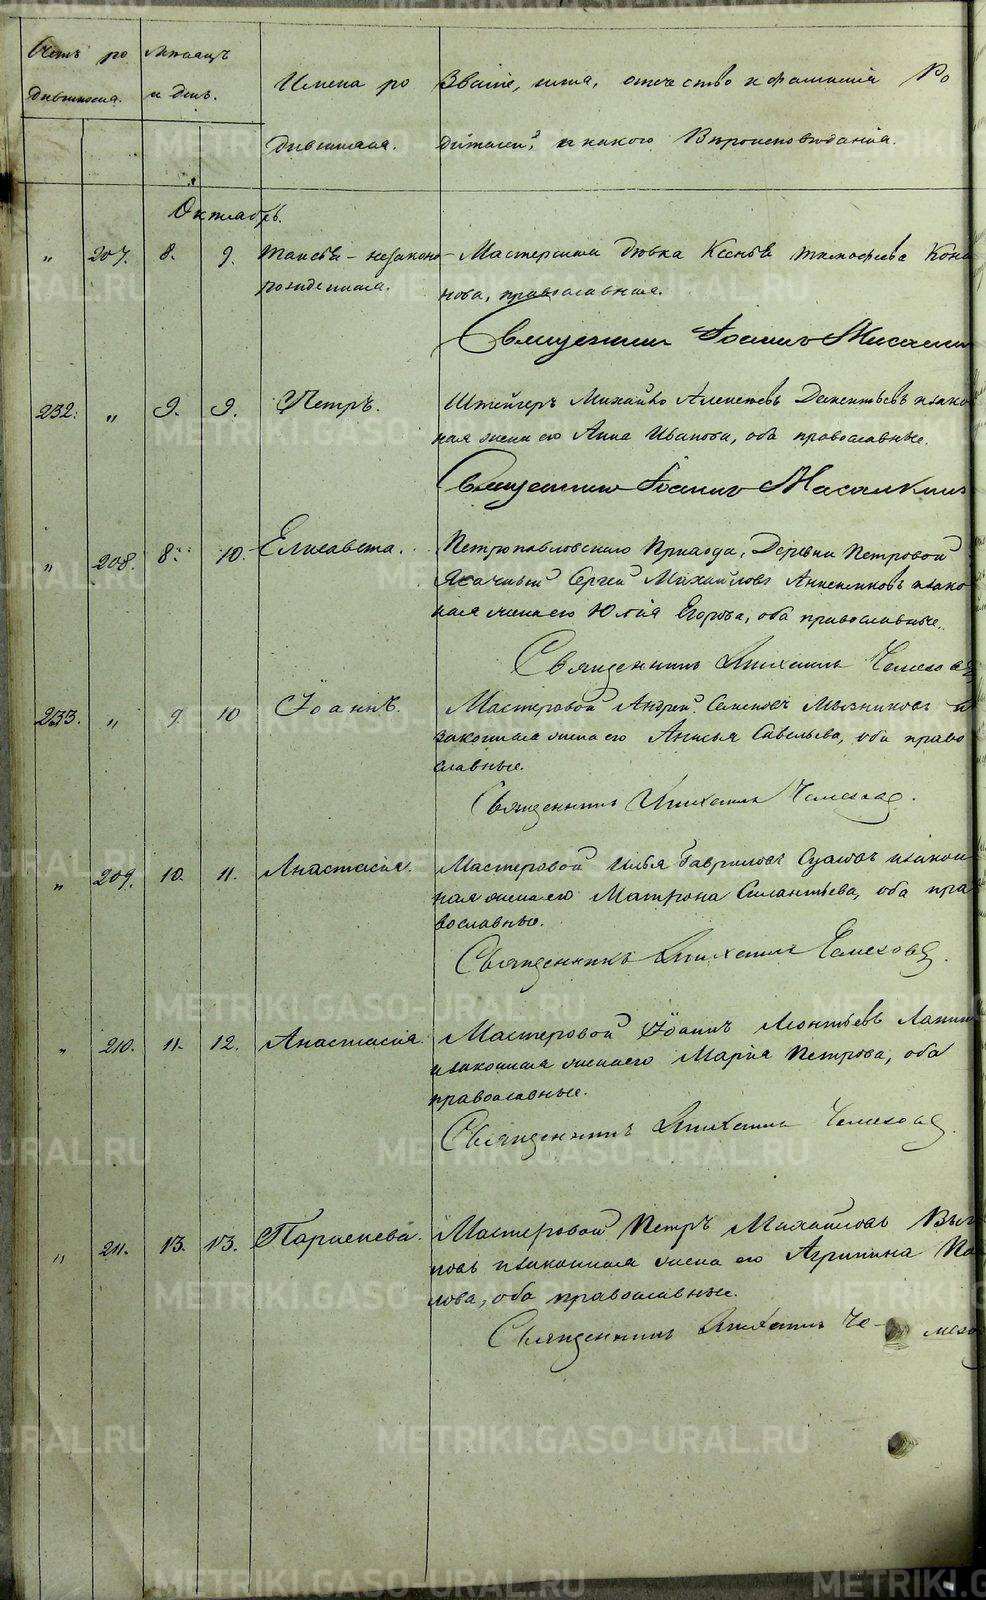 Счетъ ро
дившихся.
Мѣсяцъ
и день.
Имена ро
дившихся.
Званіе, имя, отчество и фамилія Ро
дителей, и какого Вѣроисповѣданія.
Октябрь.
" 207. 8. 9. Таисія - незаконо
рожденная.
Мастерская дѣвка Тимофеева Коно
нова, православная.
Священникъ Іоаннъ
232. " 9. 9. Петръ.
Штейгеръ Михайло Алексѣевъ Дементьевъ и закон
ная жена его Анна Иванова, оба православные.
Священникъ Іоаннъ
" 208. 8. 10. Елисавета.
Петропавловскаго Прихода, Деревни Петровой
Сергей Михайловъ и закон
ная жена его Юлія Егорова, оба православные.
Священникъ
233. " 9. 10 Іоаннъ.
Мастеровой Андрей Семеновъ и
законная жена его Анисья Савельева, оба право
славные.
Священникъ
" 209. 10. 11. Анастасія.
Мастеровой Илья Гавриловъ и закон
ная жена его Матрона Силантьева, оба пра
вославные.
Священникъ
" 210. 11. 12. Анастасія.
Мастеровой Іоаннъ Леонтьевъ
и законная жена его Марія Петрова, оба
православные.
Священникъ
" 211. 13. 13. Параскева.
Мастеровой Петръ Михайловъ
новъ и законная жена его Агрипина Па
лова, оба православные.
Священникъ
METRIKI.GASO-URAL.RU